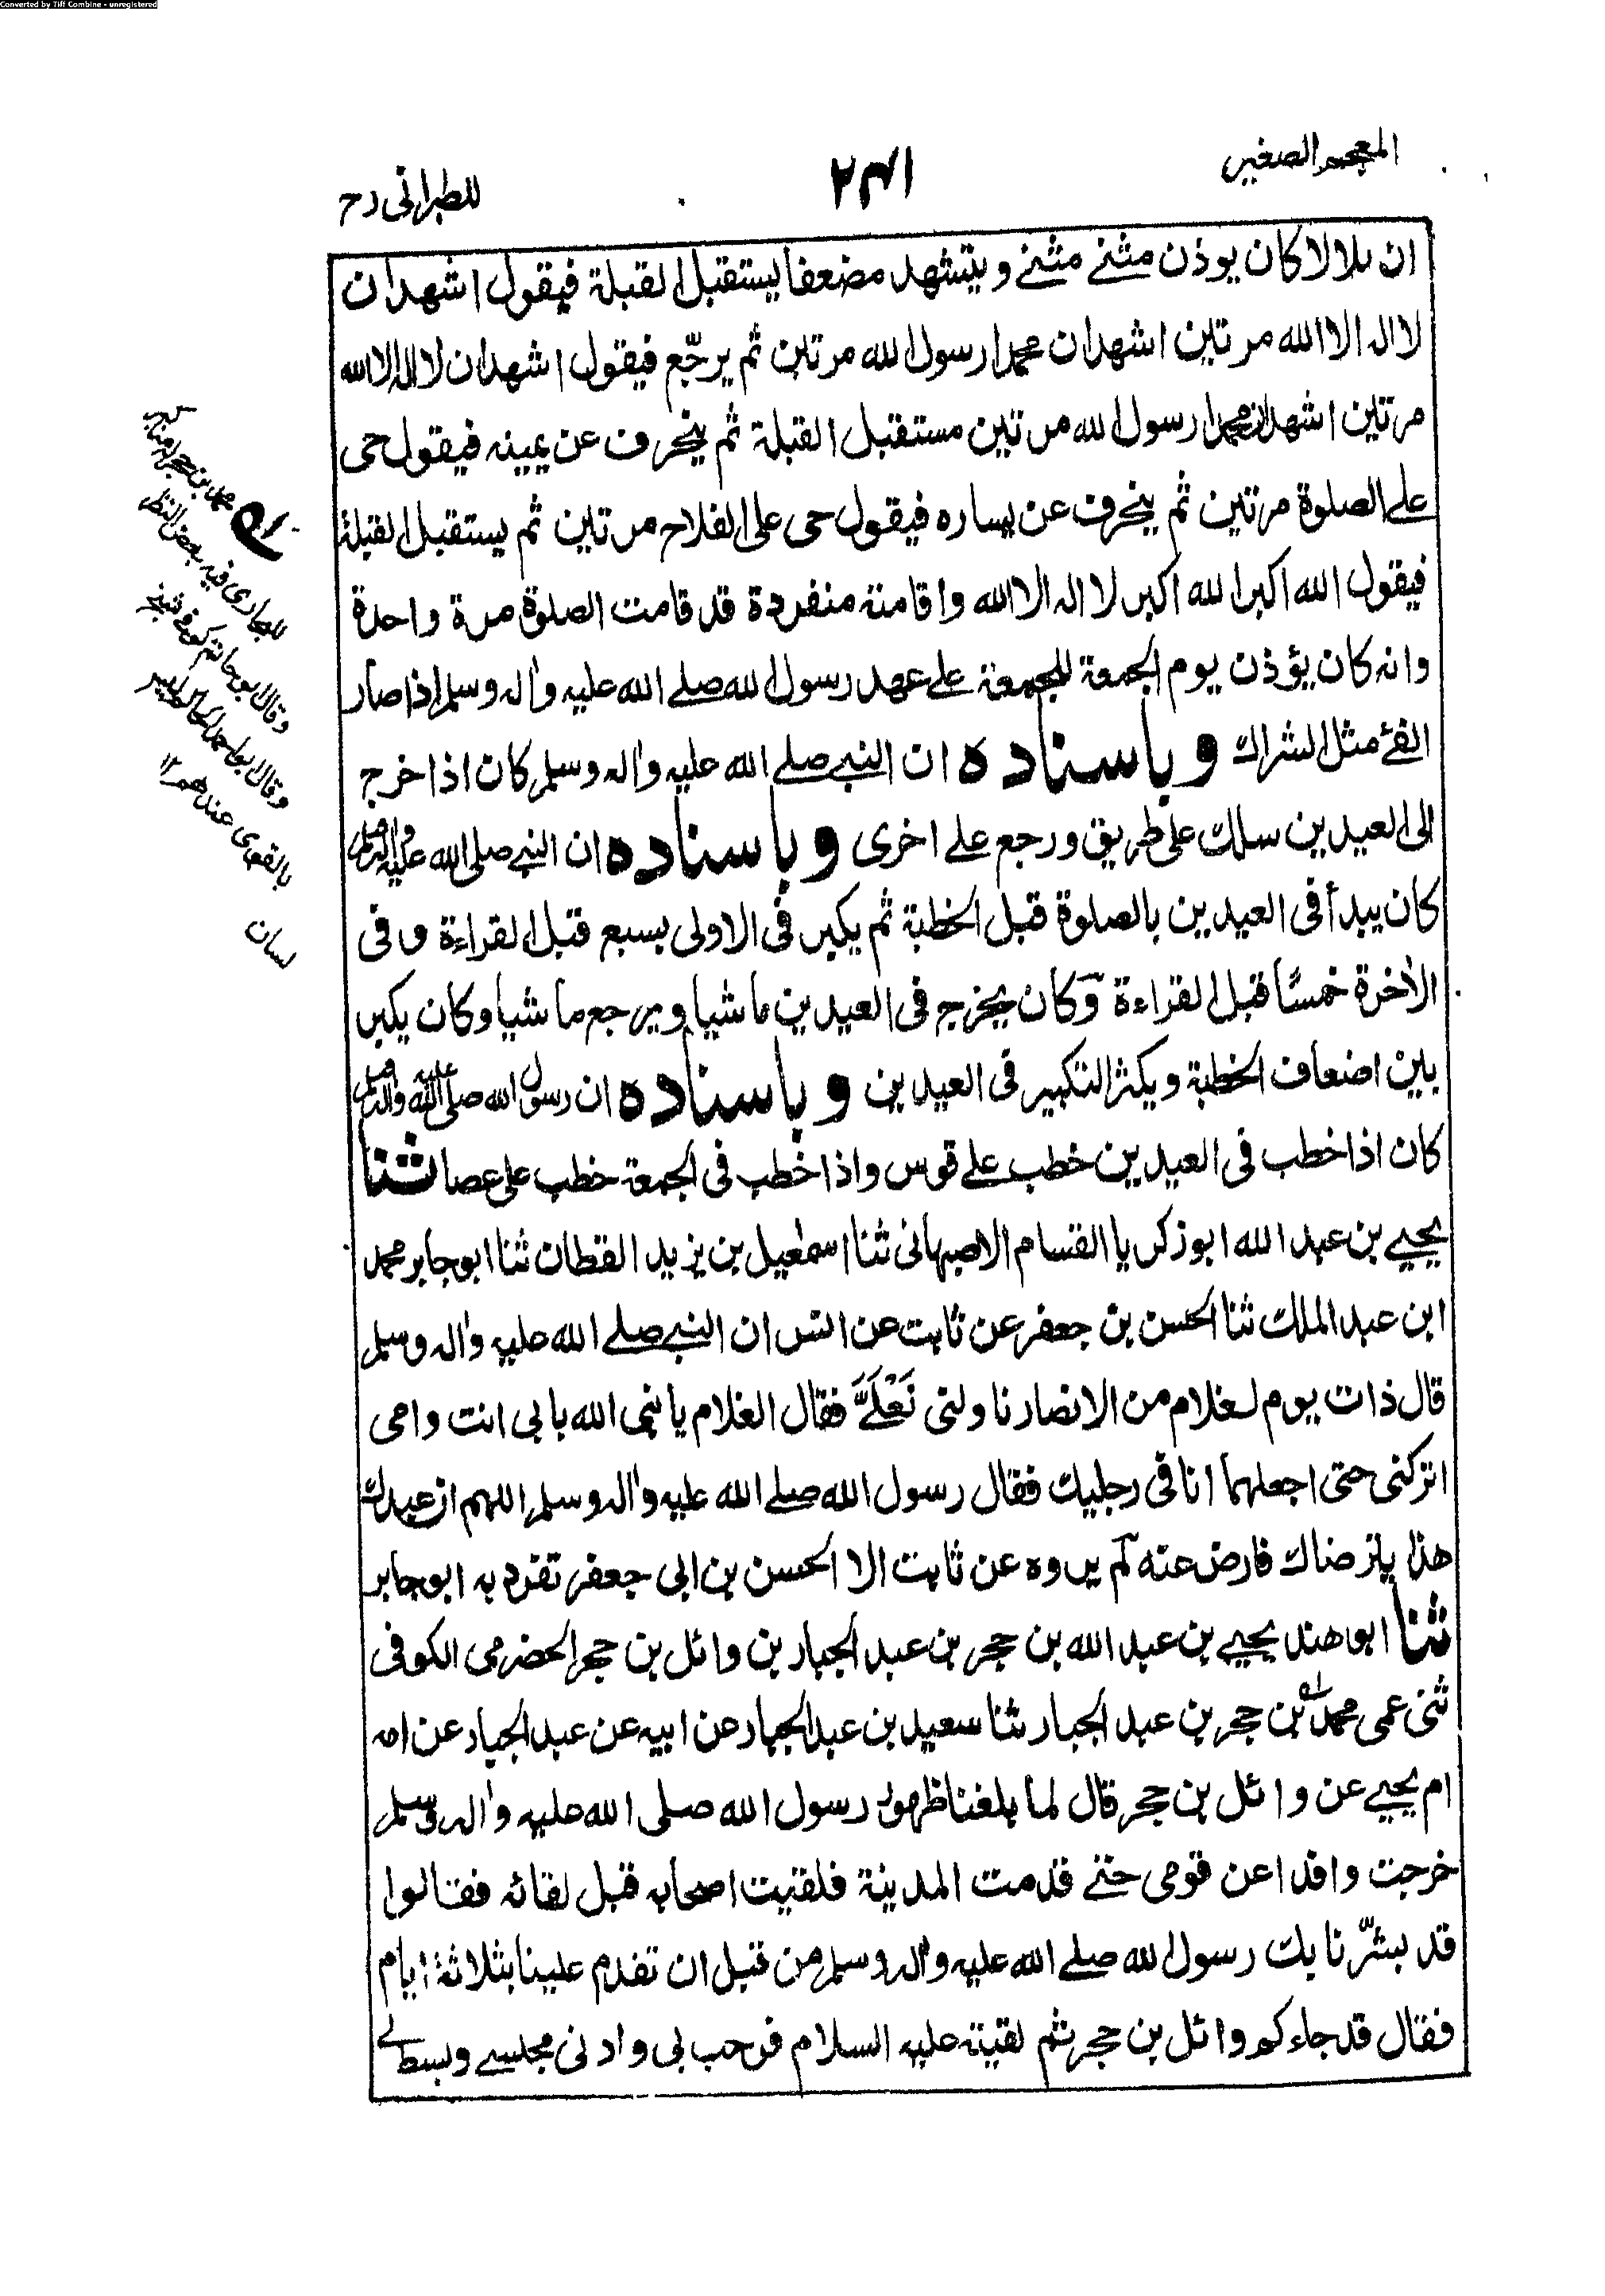 Converted by Tiff Combine - unregistered
المعجم الصغير
٢٤١
للطبرانی رح
ان بلالا كان يوذن مثنے مثنے ويتشهد مضعفا يستقبل القبلة فيقول اشهد ان
لا اله الا الله مرتين اشهد ان محمدا رسول الله مرتين ثم يرجّع فيقول اشهد ان لا اله الا الله
مرتين اشهد ان محمدا رسول الله مرتين مستقبل القبلة ثم ينحرف عن يمينه فيقول حی
علے الصلوة مرتين ثم ينحرف عن يساره فيقول حی علی الفلاح مرتين ثم يستقبل القبلة
فيقول الله اكبر الله اكبر لا اله الا الله واقامته منفردة قد قامت الصلوة مرة واحدة
وانه كان يؤذن يوم الجمعة للجمعة علے عهد رسول الله صلے الله عليه واٰله وسلم اذا صار
الفئ مثل الشراك وباسناده ان النبے صلے الله عليه واٰله وسلم كان اذا خرج
الی العيدين سلك علی طريق ورجع علے اخری وباسناده ان النبے صلی الله عليه واٰله وسلم
كان يبدأ فی العيدين بالصلوة قبل الخطبة ثم يكبر فی الاولی بسبع قبل القراءة وفی
الاٰخرة خمسًا قبل القراءة وكان يخرج فی العيدين ماشيا ويرجع ماشيا وكان يكبر
بين اضعاف الخطبة ويكثر التكبير فی العيدين وباسناده ان رسول الله صلی الله عليه واٰله وسلم
كان اذا خطب فی العيدين خطب علے قوس واذا خطب فی الجمعة خطب علی عصا ثنا
يحيے بن عبد الله ابو زكريا القسام الاصبهانی ثنا اسمٰعيل بن يزيد القطان ثنا ابو جابر محمد
ابن عبد الملك ثنا الحسن بن جعفر عن ثابت عن انس ان النبے صلے الله عليه واٰله وسلم
قال ذات يوم لغلام من الانصار ناولنی نَعْلَیَّ فقال الغلام يا نبی الله بابی انت وامی
اتركنی حتی اجعلهما انا فی رجليك فقال رسول الله صلے الله عليه واٰله وسلم اللهم ان عبدك
هذا يترضاك فارض عنه لم يروه عن ثابت الا الحسن بن ابی جعفر تفرد به ابو جابر
ثنا ابو هند يحيے بن عبد الله بن حجر بن عبد الجبار بن وائل بن حجر الحضرمی الكوفی
ثنی عمی محمد بن حجر بن عبد الجبار ثنا سعيد بن عبد الجبار عن ابيه عن عبد الجبار عن امه
ام يحيے عن وائل بن حجر قال لما بلغنا ظهور رسول الله صلی الله عليه واٰله وسلم
خرجت وافدا عن قومی حتے قدمت المدينة فلقيت اصحابه قبل لقائه فقالوا
قد بشّرنا بك رسول الله صلے الله عليه واٰله وسلم من قبل ان تقدم علينا بثلاثة ايام
فقال قد جاءكم وائل بن حجر ثم لقيته عليه السلام فرحب بی وادنی مجلسے وبسط لے
محمد بن حجر له مناكير
للبخاری فيه بعض النظر
وقال ابو حاتم كوفی شيخ
وقال ابو احمد الحاكم ليس
بالقوی عندهم ١٢
لسان